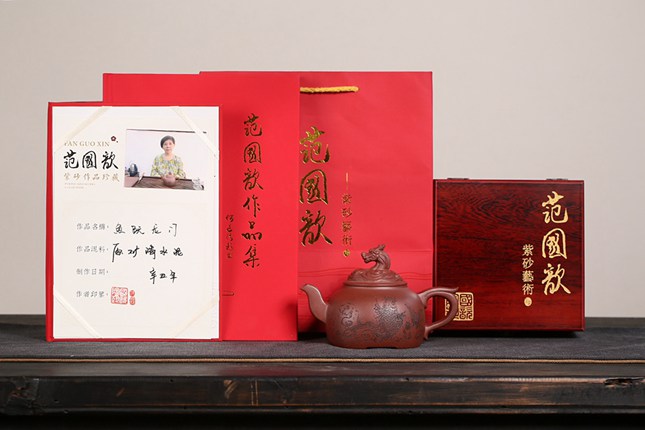 FAN GUO XIN
范國歆
紫砂作品珍藏
作品名稱:
鱼跃龙门
作品泥料:
原矿清水泥
制作日期:
辛丑年
作者印鑒:
范國歆作品集
范國歆
紫砂藝術
范國歆
紫砂藝術